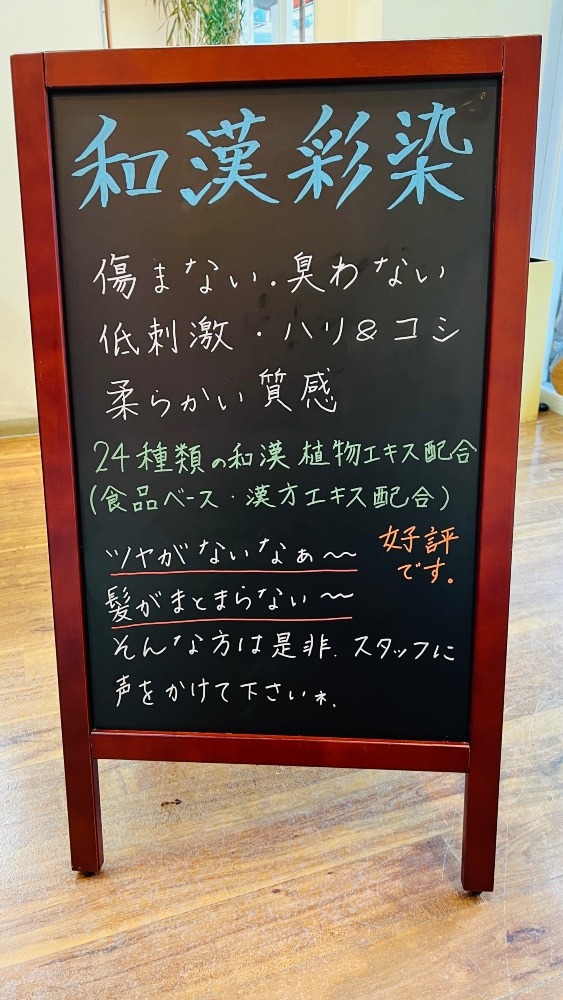 和漢彩染
傷まない・臭わない
低刺激・ハリ&コシ
柔らかい質感
24種類の和漢植物エキス配合
(食品ベース・漢方エキス配合)
ツヤがないなぁ〜
好評
です。
髪がまとまらない〜
そんな方は是非、スタッフに
声をかけて下さいネ。